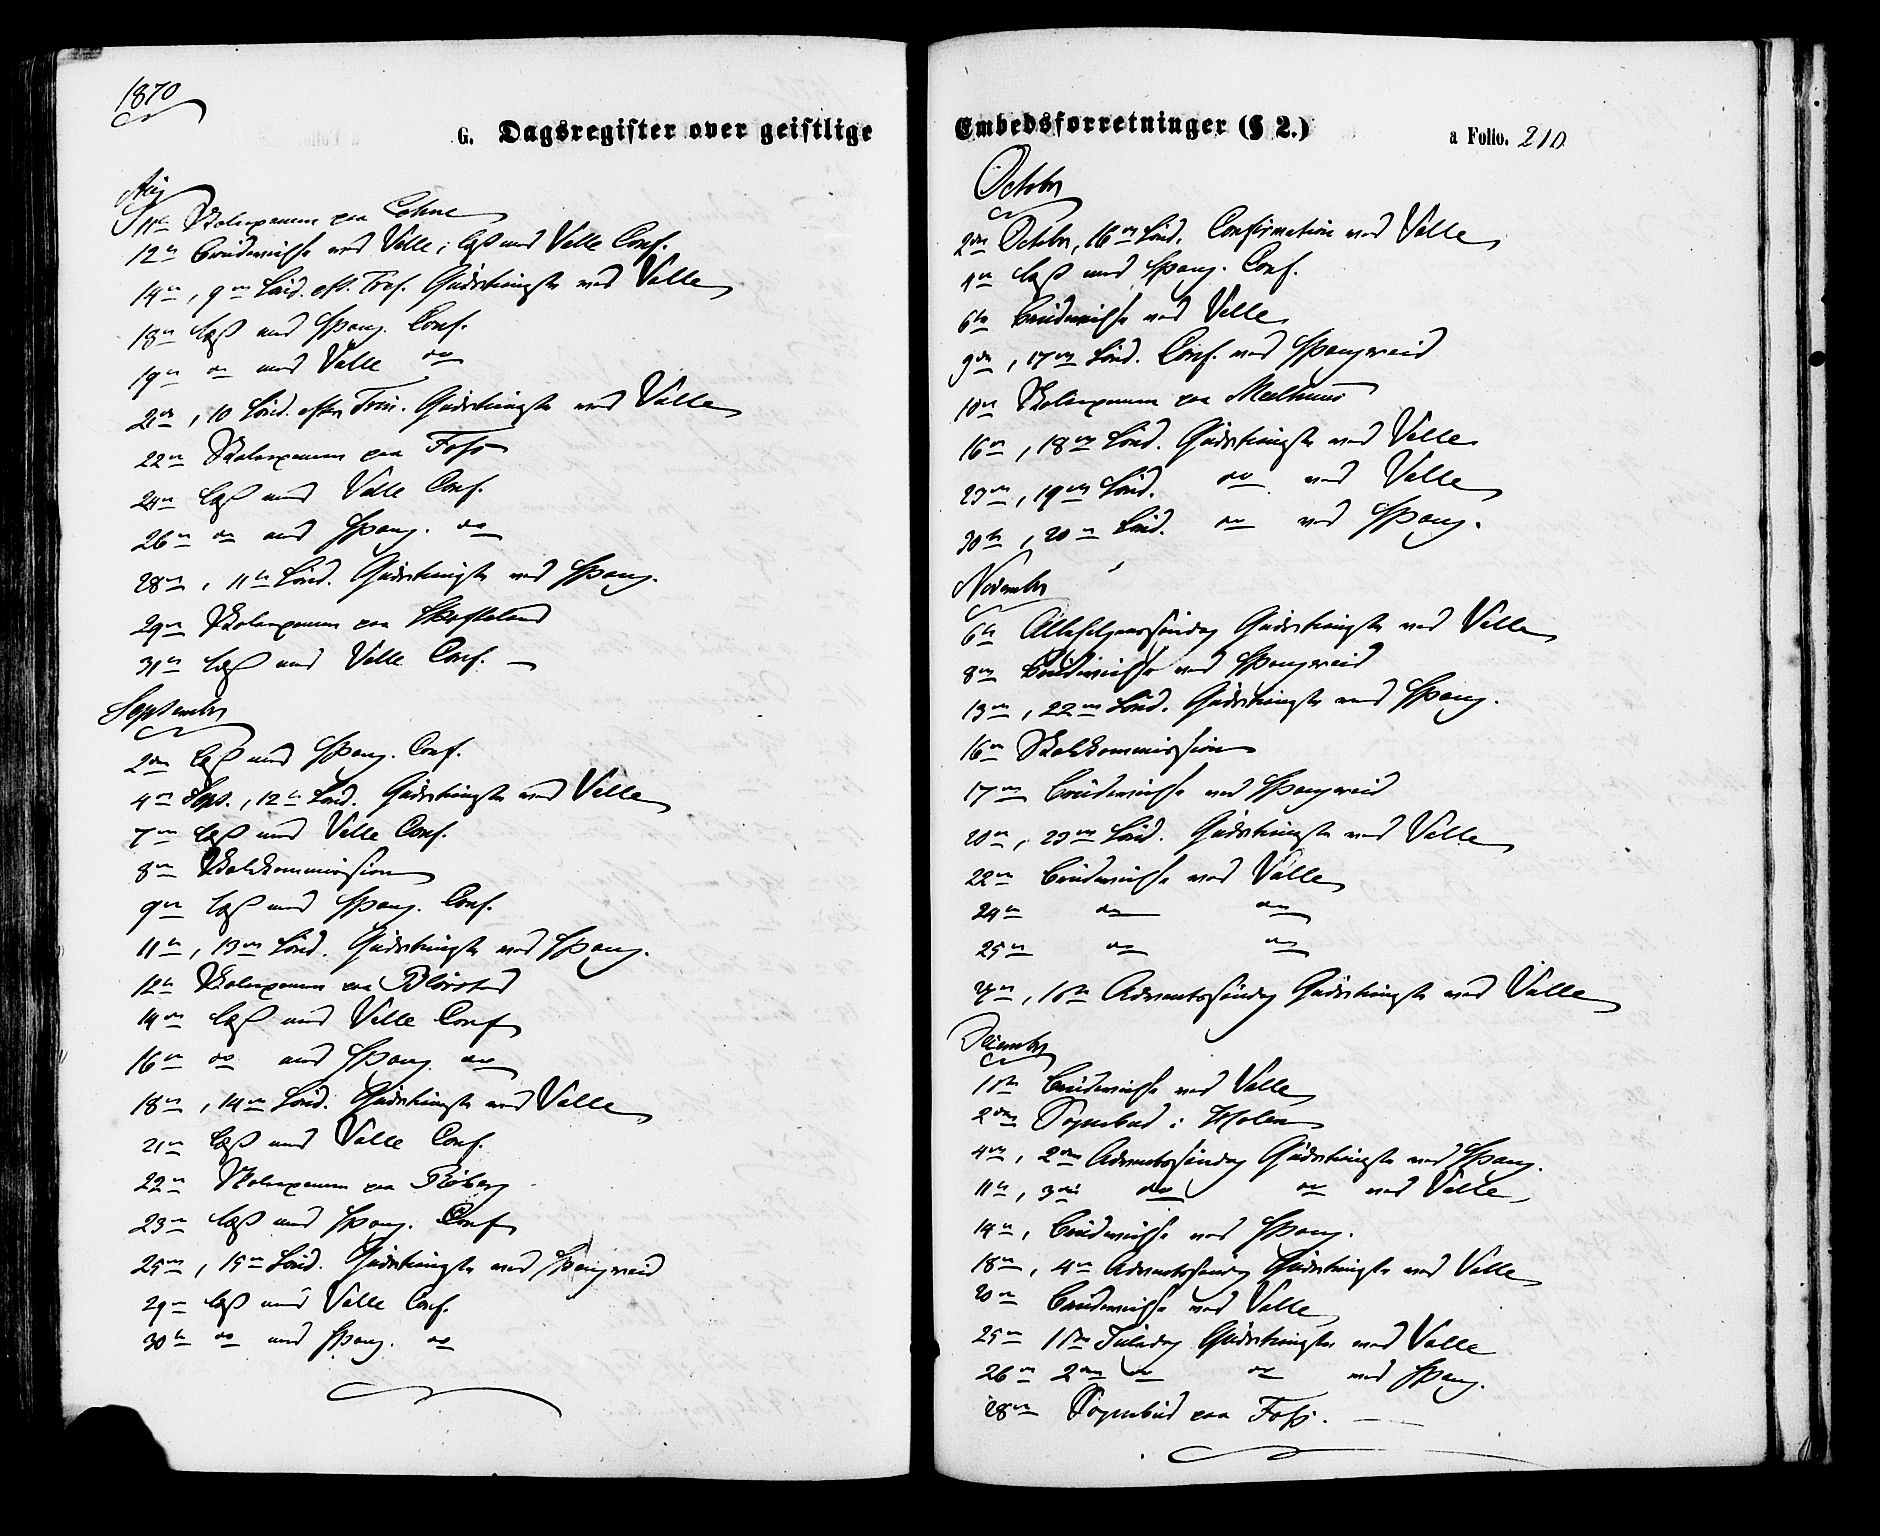 1870
G. Dagsregister over geistlige
Aug
11te Skolexamen paa
12te Brudevielse ved Valle; læst med Valle Conf.
14de, 9de Sønd. eft. Tref. Gudstjeneste ved Valle
18de læst med Spang. Conf.
19de do med Valle do
21de, 10 Sønd. efter Trin. Gudstjeneste ved Valle
22de Skolexamen paa Foss
24de læst med Valle Conf.
26de do med Spang. do
28de, 11te Sønd. Gudstjeneste ved Spang.
29de Skolexamen paa
31te læst med Valle Conf.
September
2den læst med Spang. Conf.
4de Sept., 12te Sønd. Gudstjeneste ved Valle
7de læst med Valle Conf.
8de Skolekommission
9de læst med Spang. Conf.
11te, 13de Sønd. Gudstjeneste ved Spang.
12te Skolexamen paa
14de læst med Valle Conf
16de do med Spang do
18de, 14de Sønd. Gudstjeneste ved Valle
21de læst med Valle Conf.
22de Skolexamen paa
23de læst med Spang. Conf
25de, 15de Sønd. Gudstjeneste ved Spangereid
29de læst med Valle Conf.
30te do med Spang. do
Embedsforretninger (§ 2.)
a Folio. 210
October
2den October, 16de Sønd. Confirmation ved Valle
læst med Spang. Conf.
6te Brudevielse ved Valle
9de, 17de Sønd. Conf. ved Spangereid
10de Skolexamen paa
16de, 18de Sønd. Gudstjeneste ved Valle
23de, 19de Sønd. do ved Valle
30te, 20de Sønd. do ved Spang.
November
6te Allehelgenssøndag Gudstjeneste ved Valle
8de Brudevielse ved Spangereid
13de, 22de Sønd. Gudstjeneste ved Spang.
16de Skolekommission
17de Brudevielse ved Spangereid
20de, 23de Sønd. Gudstjeneste ved Valle
22de Brudevielse ved Valle
24de do do
25de do do
27de, 1ste Adventssøndag Gudstjeneste ved Valle
December
1ste Brudevielse ved Valle
2den Sognebud i
4de, 2den Adventssøndag Gudstjeneste ved Spang.
11te, 3die do do ved Valle
14de, Brudevielse ved Spang.
18de, 4de Adventssøndag Gudstjeneste ved Valle
20de Brudevielse ved Valle
25de 1ste Juledag Gudstjeneste ved Valle
26de 2den do do ved Spang.
28de Sognebud paa Foss.